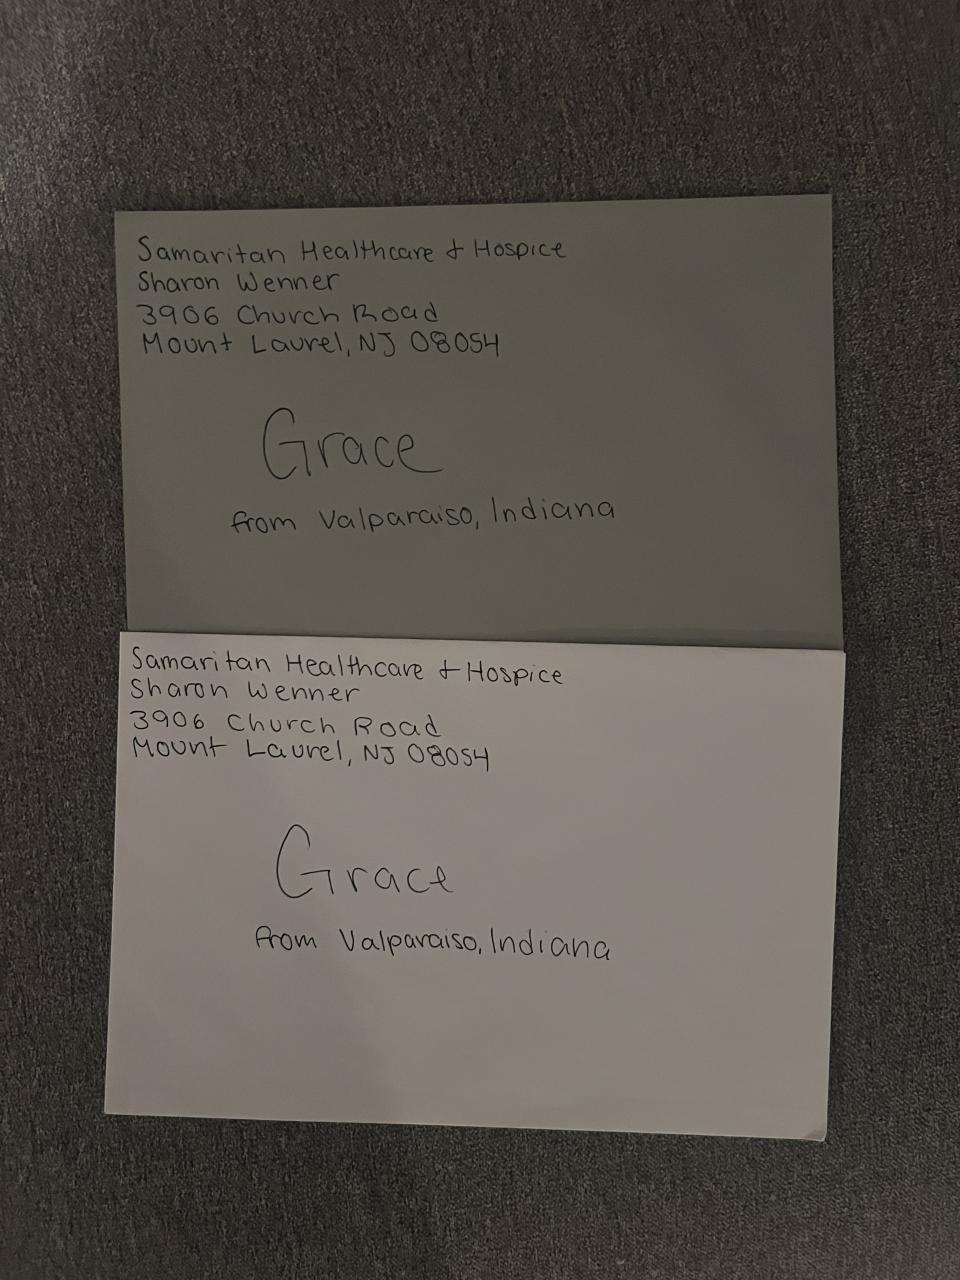 Samaritan Healthcare & Hospice
Sharon Wenner
3906 Church Road
Mount Laurel, NJ 08054
Grace
from Valparaiso, Indiana
Samaritan Healthcare & Hospice
Sharon Wenner
3906 Church Road
Mount Laurel, NJ 08054
Grace
from Valparaiso, Indiana